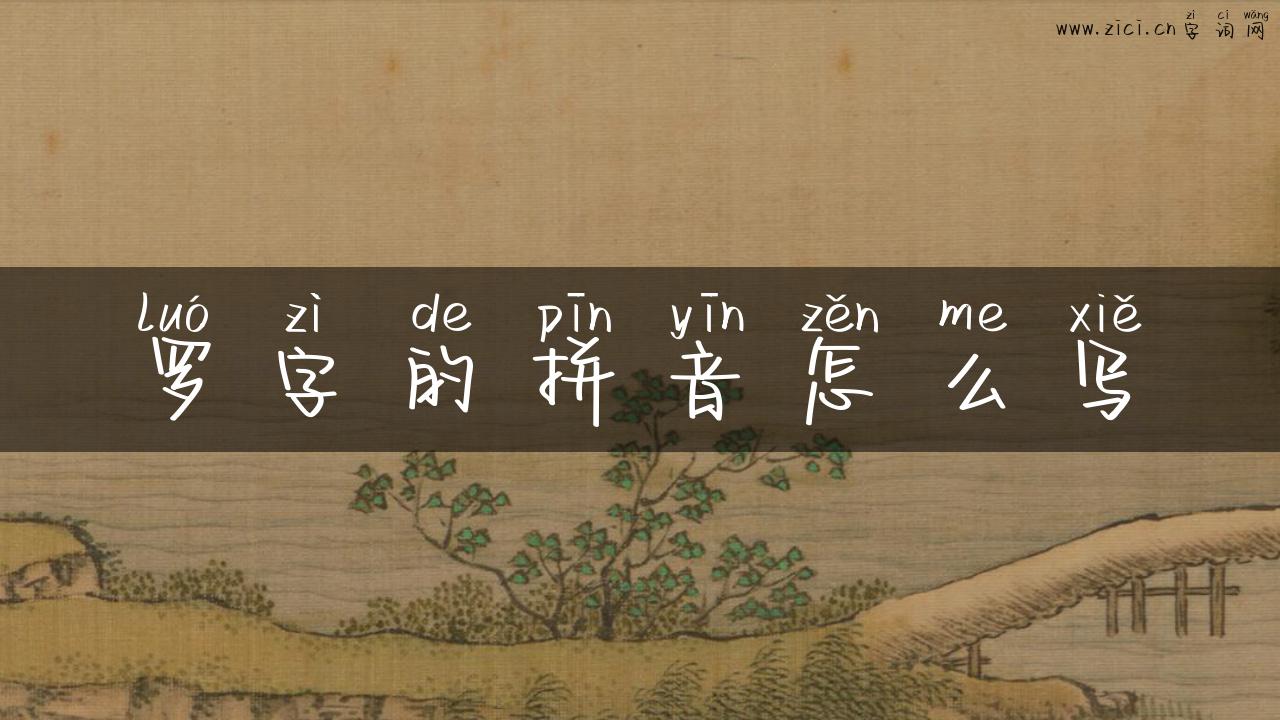 zì cí wǎng
www.zici.cn字词网
luó zì de pīn yīn zěn me xiě
罗字的拼音怎么写